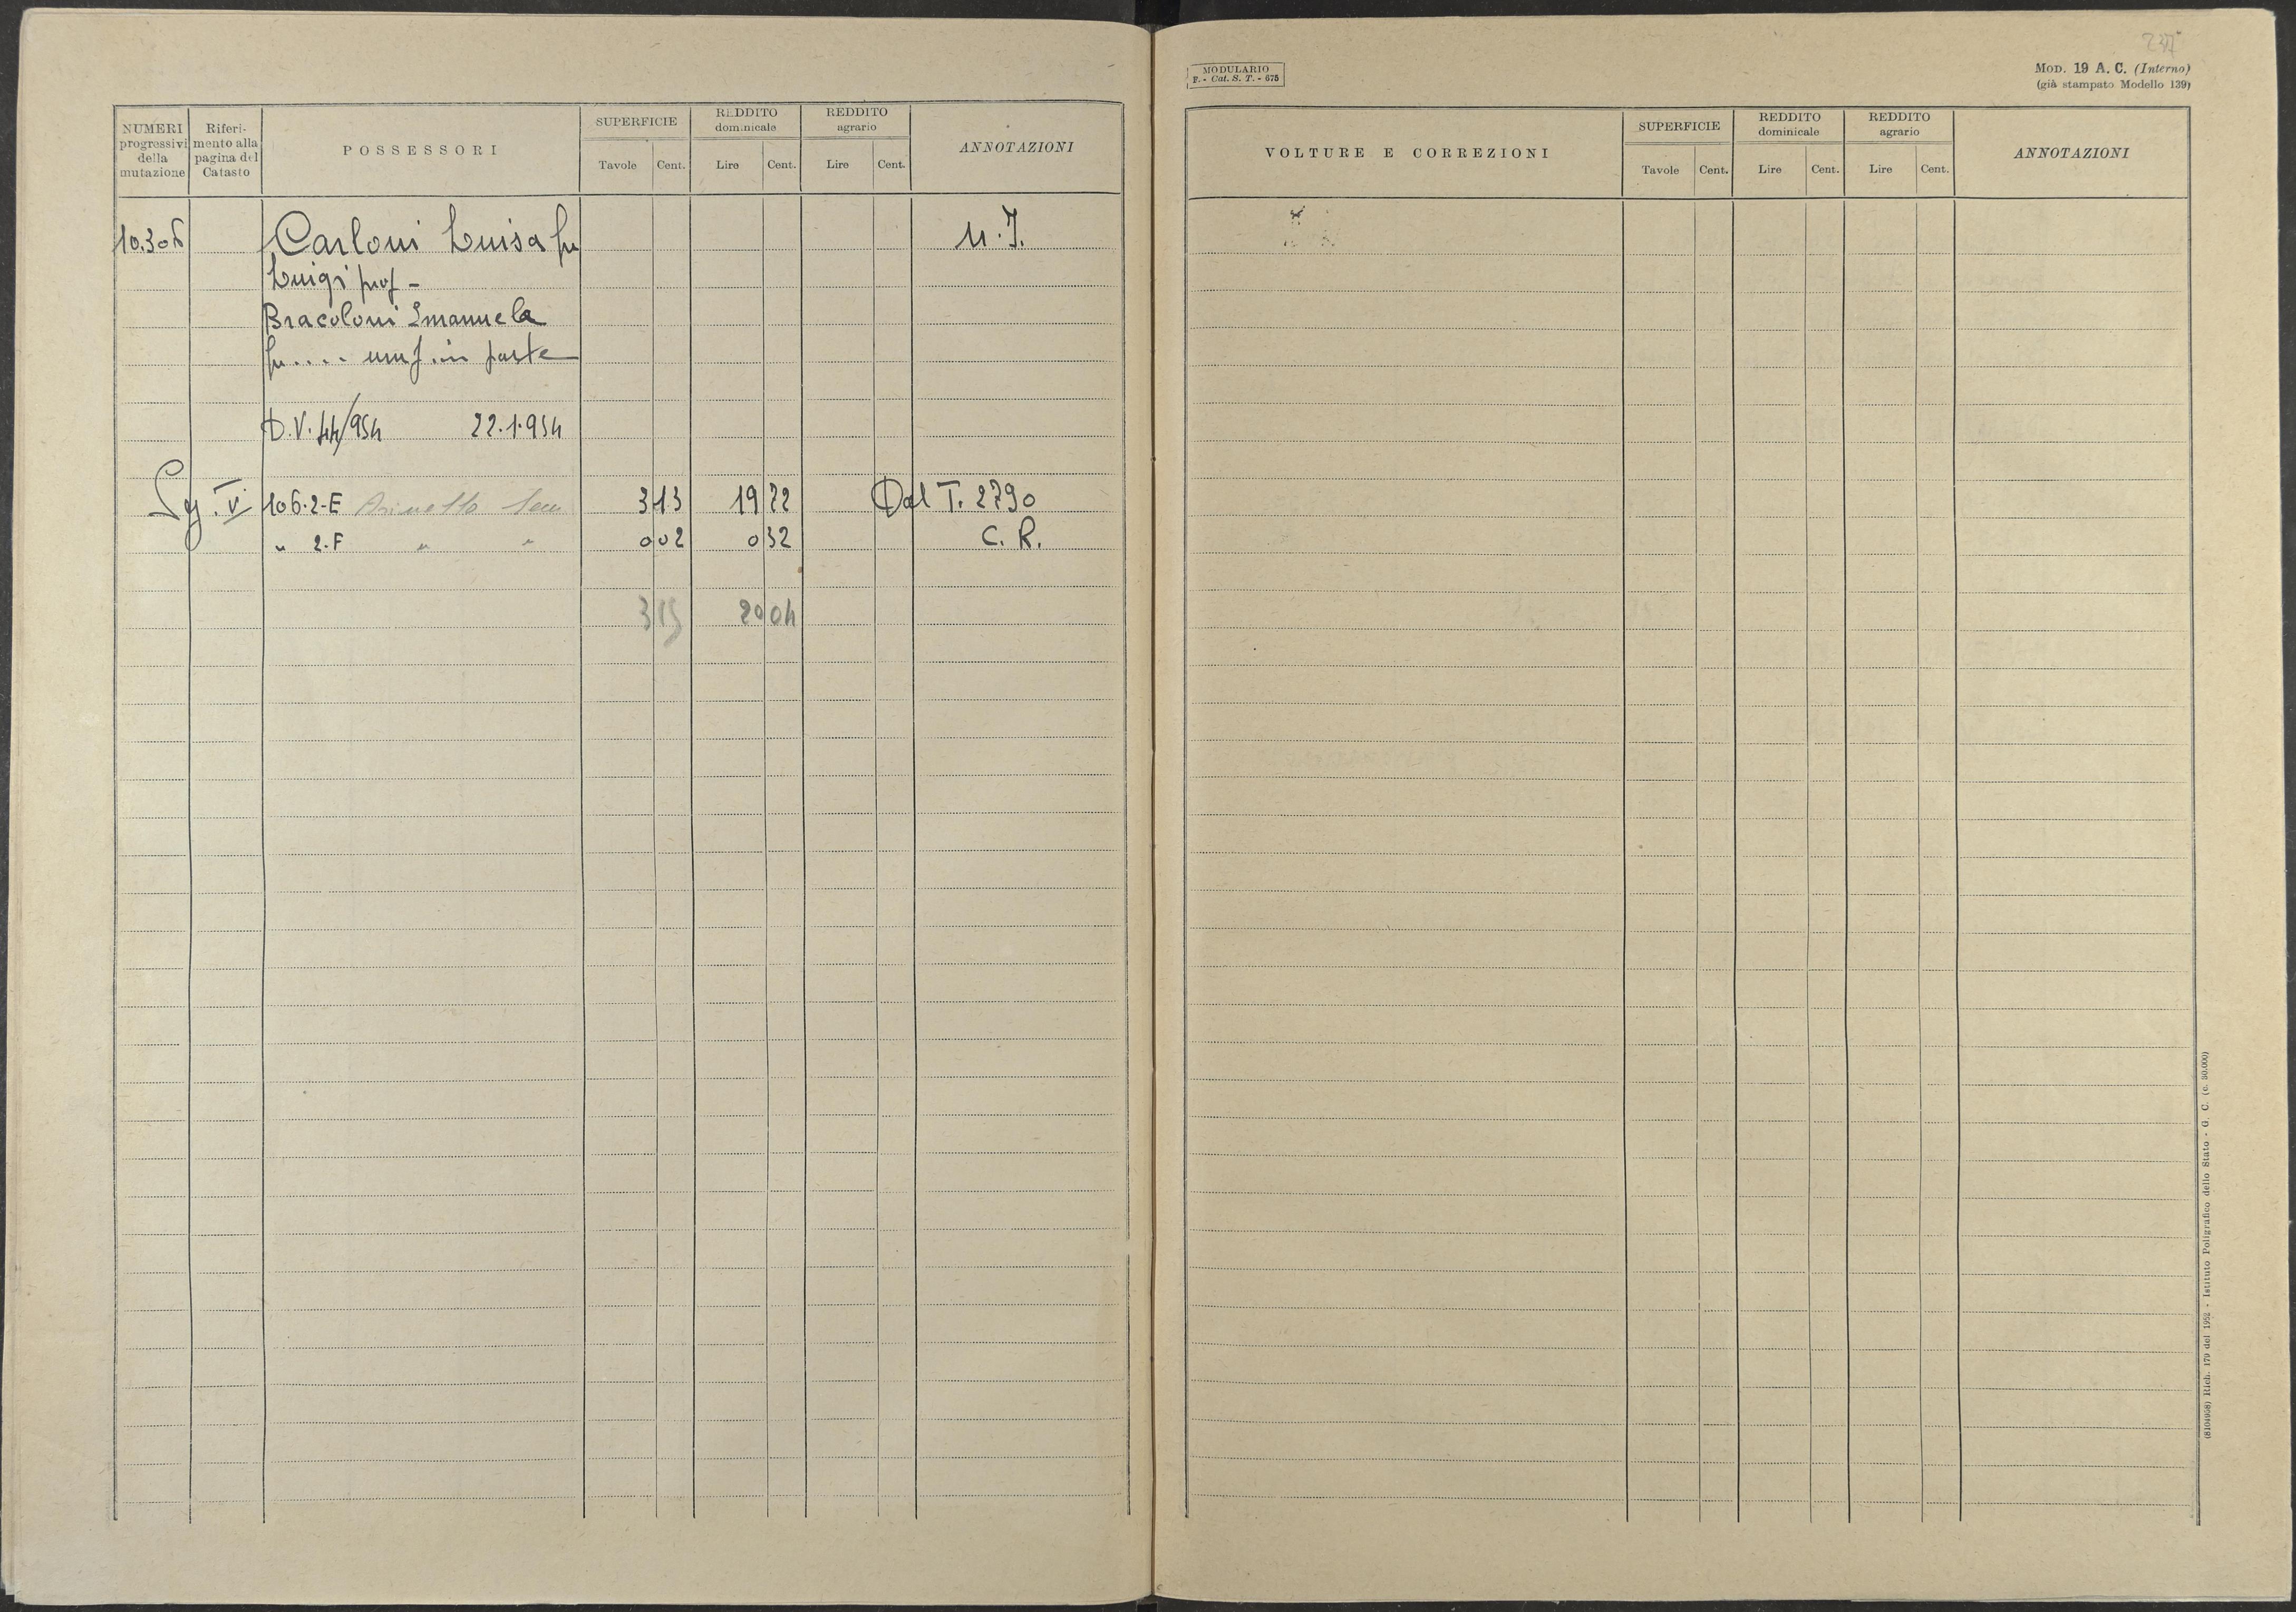 NUMERI progressivi della mutazione
Riferi-mento alla pagina del Catasto
POSSESSORI
SUPERFICIE
Tavole Cent.
REDDITO dominicale
Lire Cent.
REDDITO agrario
Lire Cent.
ANNOTAZIONI
10.306 Carloni Luisa fu U.I.
Luigi prof -
Bracoloni Emanuela
fu.... usuf. in parte
D.V. 44/954 22.1.954
Sg. V 106.2-E 3 13 19 72 Dal T. 2790
" 2.F " " 0 02 0 32 C. R.
3 15 20 04
MODULARIO
F. - Cat. S. T. - 675
237
MOD. 19 A. C. (Interno)
(già stampato Modello 139)
VOLTURE E CORREZIONI
SUPERFICIE
Tavole Cent.
REDDITO dominicale
Lire Cent.
REDDITO agrario
Lire Cent.
ANNOTAZIONI
(8104958) Rich. 179 del 1952 - Istituto Poligrafico dello Stato - G. C. (c. 30.000)